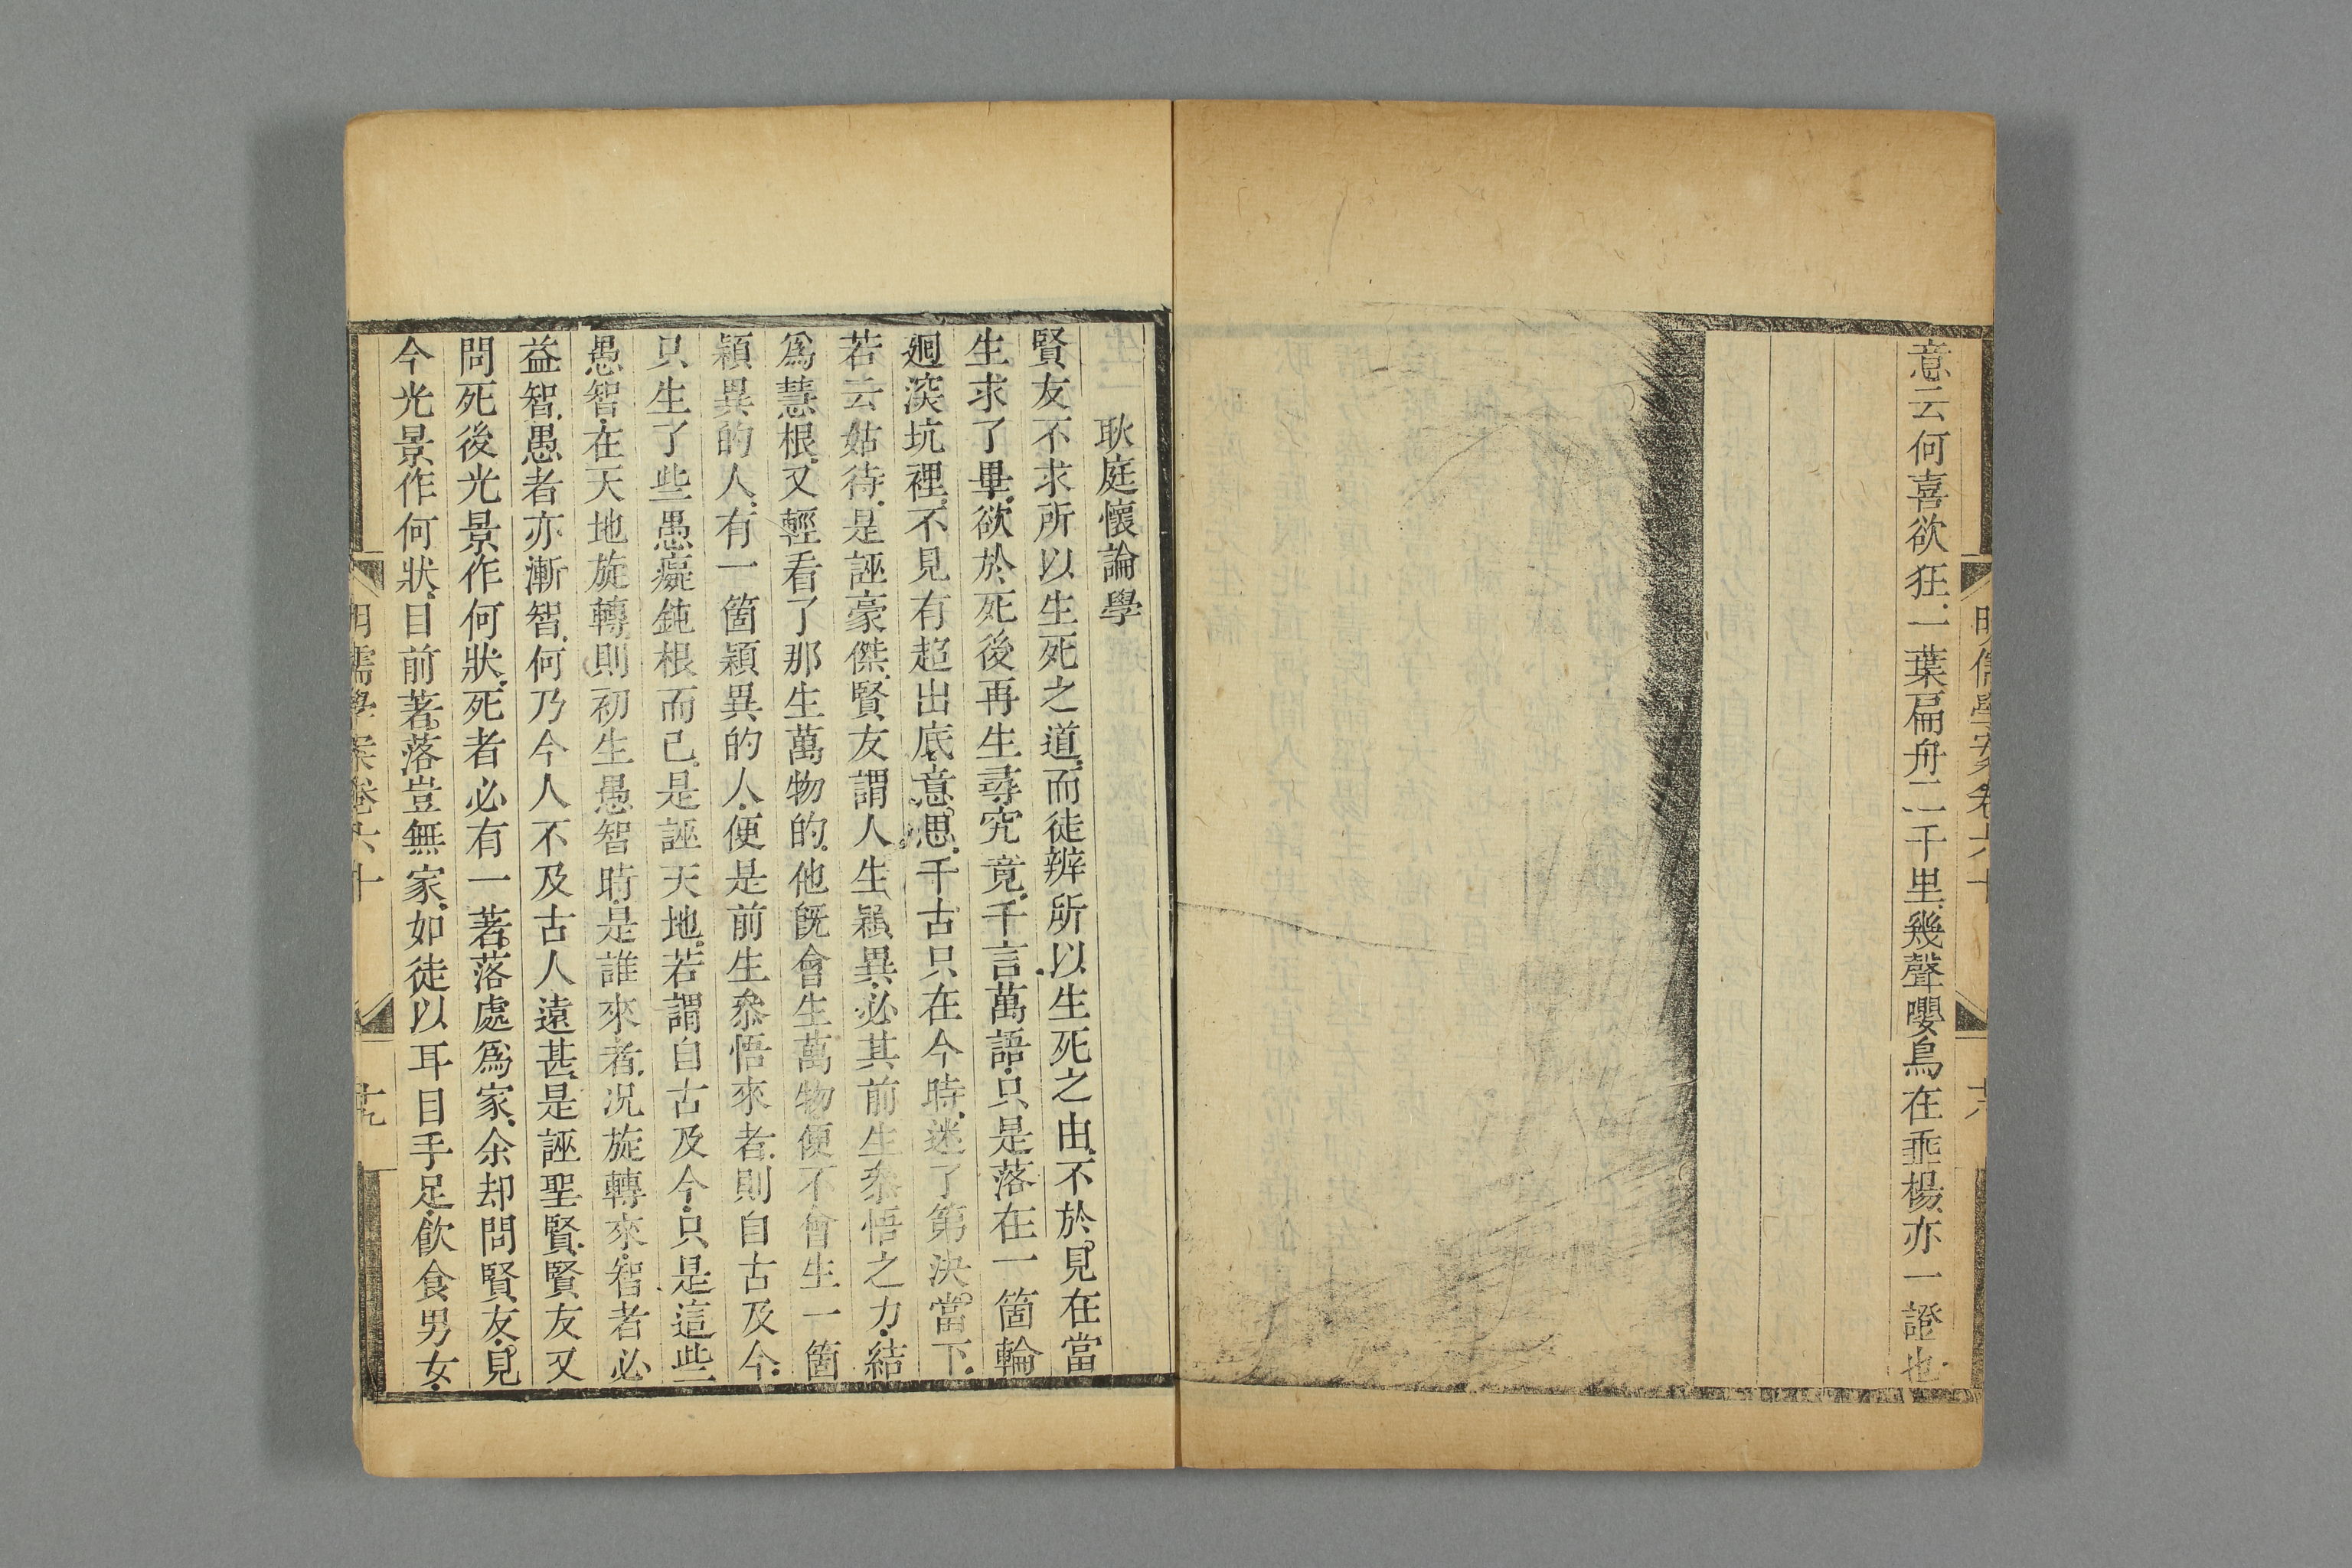 意云何喜欲狂一葉扁舟二千里幾聲嚶鳥在垂楊亦一證也
明儒學案卷六十
耿庭懷論學
賢友不求所以生死之道而徒辨所以生死之由不於見在當
生求了畢欲於死後再生尋究竟千言萬語只是落在一箇輪
廻深坑裡不見有超出底意思千古只在今時迷了第決當下
若云姑待是誣豪傑賢友謂人生穎異必其前生叅悟之力結
爲慧根又輕看了那生萬物的他旣會生萬物便不會生一箇
穎異的人有一箇穎異的人便是前生叅悟來者則自古及今
只生了些愚癡鈍根而已是誣天地若謂自古及今只是這些
愚智在天地旋轉則初生愚智時是誰來者况旋轉來智者必
益智愚者亦漸智何乃今人不及古人遠甚是誣聖賢賢友又
問死後光景作何狀死者必有一著落處爲家余却問賢友見
今光景作何狀目前著落豈無家如徒以耳目手足飮食男女
明儒學案卷六十